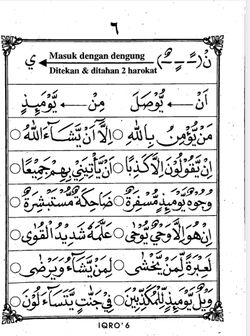 ٦
نْ (ــًــٍــٌ) ← ي
Masuk dengan dengung
Ditekan & ditahan 2 harokat
اَنْ ← يُّوْصَلَ مِنْ ← يَّوْمَئِذٍ
مَنْ يُّؤْمِنْ بِاللّٰهِ ○ اِلَّآ اَنْ يَّشَآءَ اللّٰهُ ○
اِنْ يَّقُوْلُوْنَ اِلَّا كَذِبًا ○ اَنْ يَّأْتِيَنِيْ بِهِمْ جَمِيْعًا ○
وُجُوْهٌ يَّوْمَئِذٍ مُّسْفِرَةٌ ○ ضَاحِكَةٌ مُّسْتَبْشِرَةٌ ○
اِنْ هُوَ اِلَّا وَحْيٌ يُّوْحٰى ○ عَلَّمَهٗ شَدِيْدُ الْقُوٰى ○
لَعِبْرَةً لِّمَنْ يَّخْشٰى ○ لِمَنْ يَّشَآءُ وَيَرْضٰى ○
وَيْلٌ يَّوْمَئِذٍ لِّلْمُكَذِّبِيْنَ ○ فِيْ جَنّٰتٍ يَّتَسَآءَلُوْنَ ○
IQRO' 6